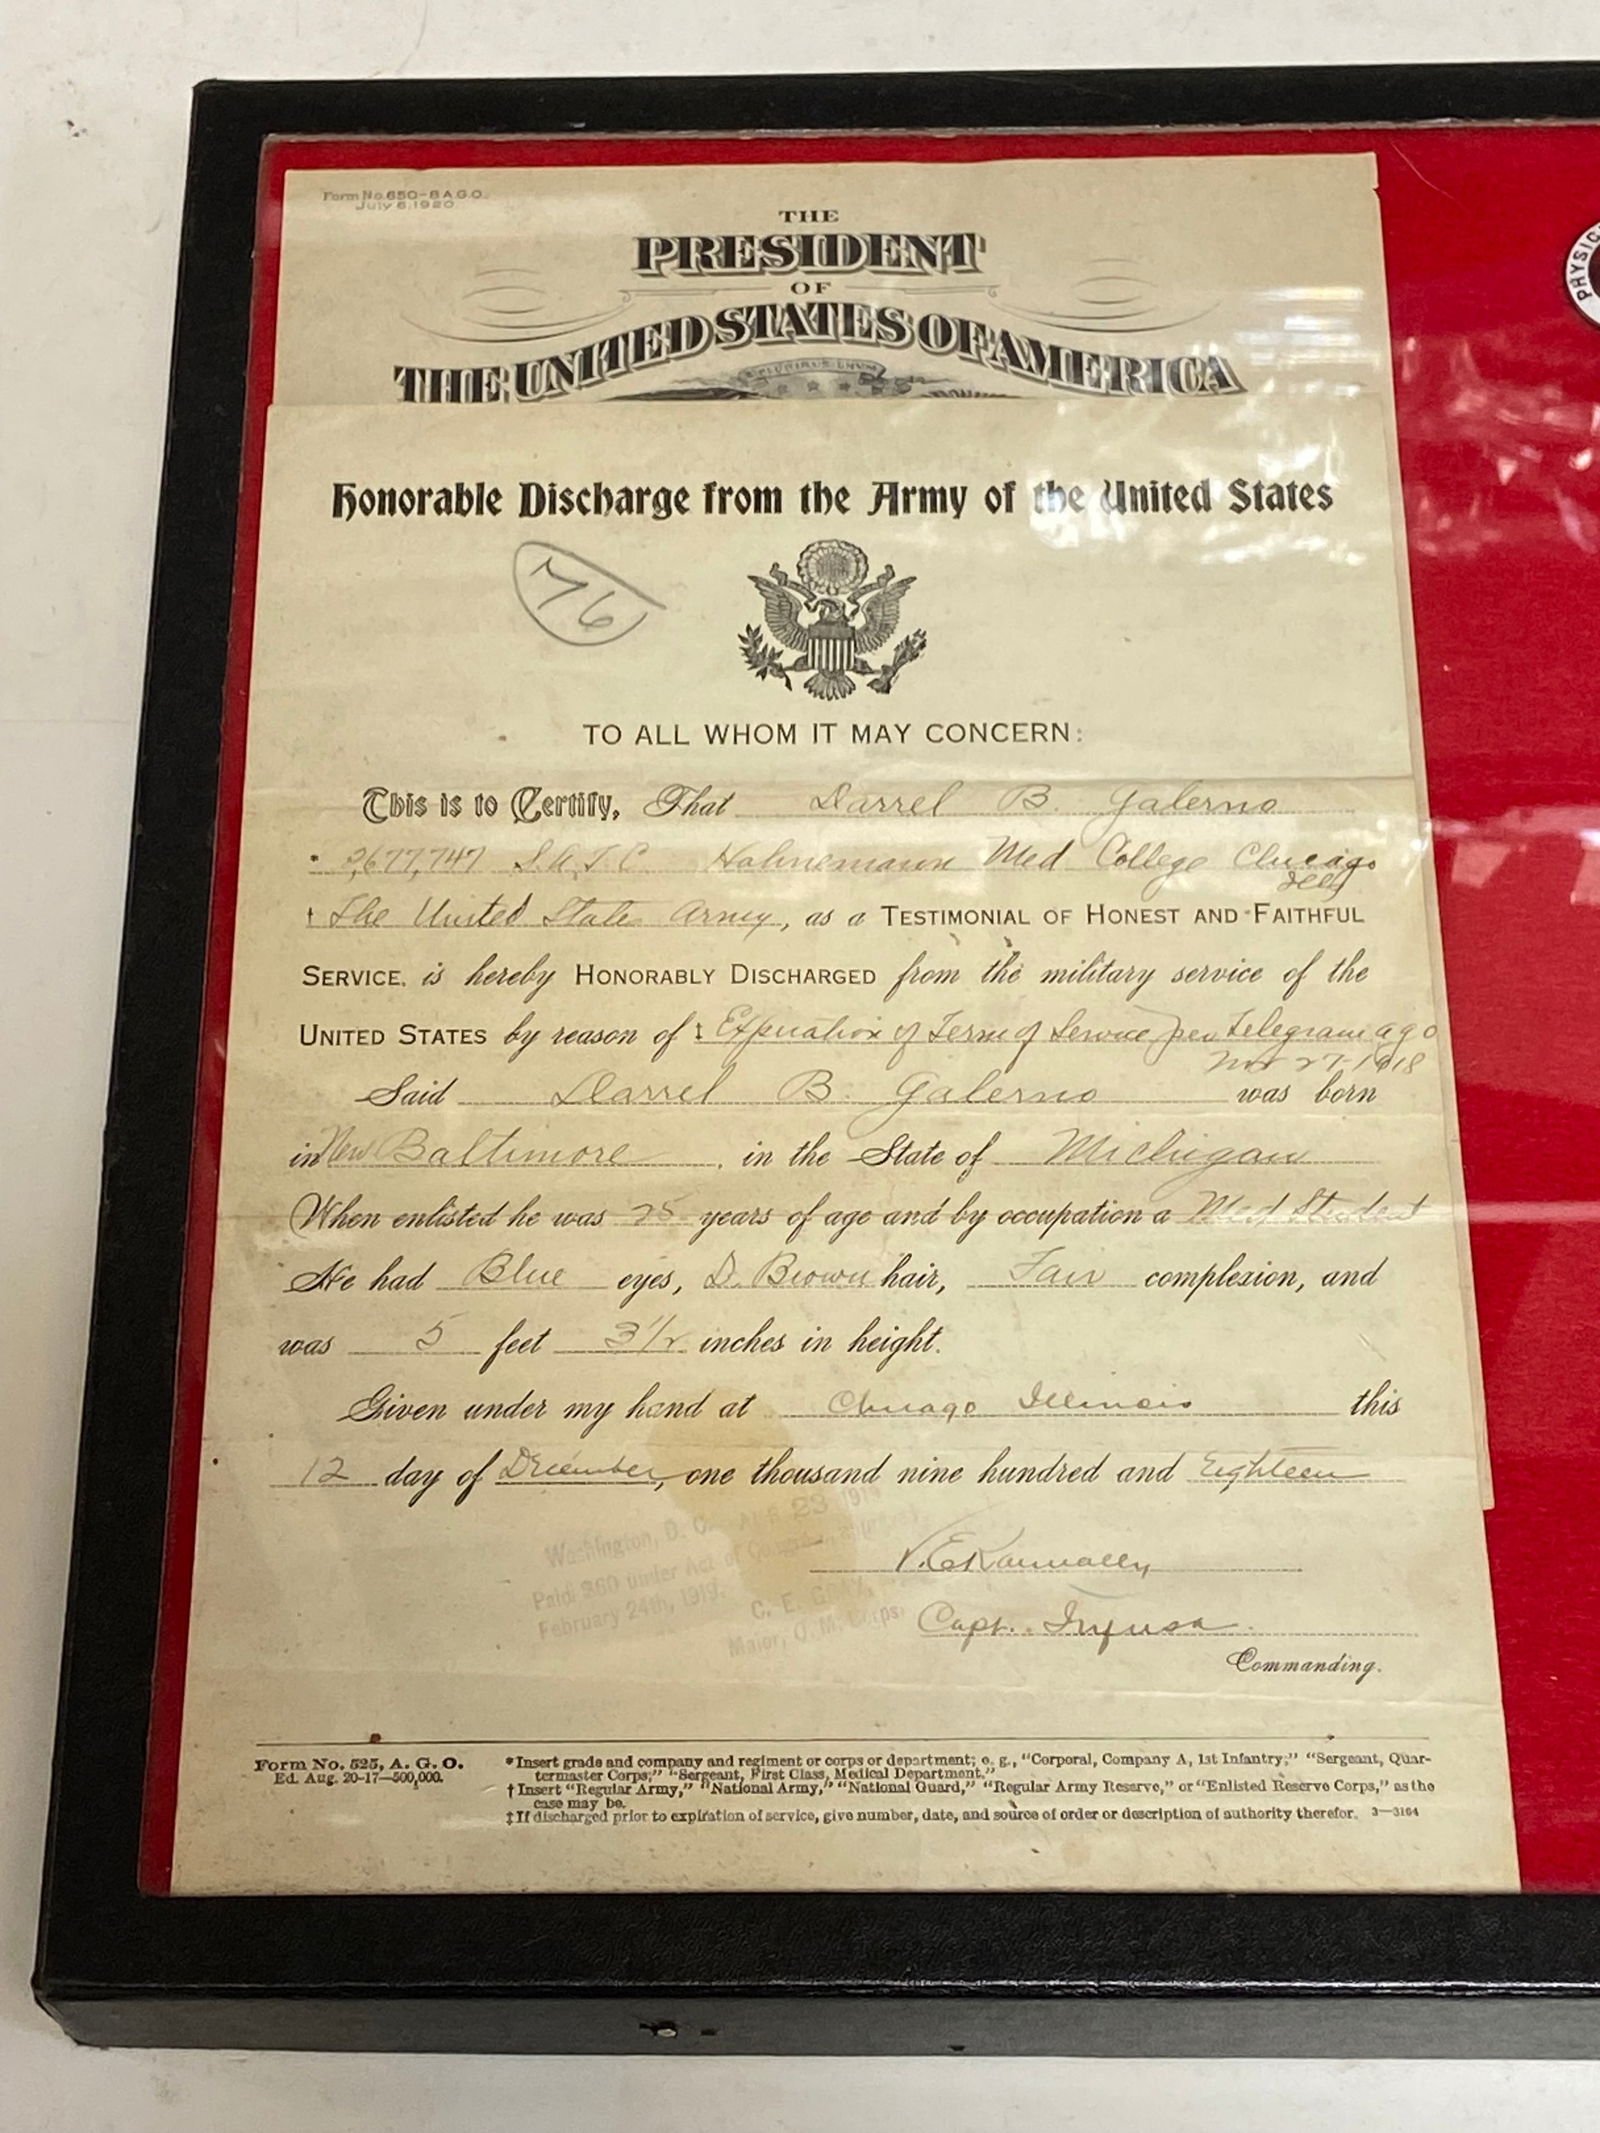 Form No. 650-8 A.G.O.
July 6, 1920
THE
PRESIDENT
OF
THE UNITED STATES OF AMERICA
PLURIBUS UNUM
PHYSIC
Honorable Discharge from the Army of the United States
76
TO ALL WHOM IT MAY CONCERN:
This is to Certify, That Darrel B. Galerno
* 2,677,747 S.A.T.C. Hahnemann Med College Chicago
Ill
† The United State Army, as a TESTIMONIAL OF HONEST AND FAITHFUL
SERVICE, is hereby HONORABLY DISCHARGED from the military service of the
UNITED STATES by reason of ‡ Expiration of Term of Service per Telegram ago
Nov 27-1918
Said Darrel B. Galerno was born
in New Baltimore, in the State of Michigan
When enlisted he was 25 years of age and by occupation a Med Student
He had Blue eyes, D. Brown hair, Fair complexion, and
was 5 feet 3 1/2 inches in height.
Given under my hand at Chicago Illinois this
12 day of December, one thousand nine hundred and Eighteen
Washington, D. C. 23 191
Paid $60 under Act of Congress
February 24th, 1919.
C. E. GRAY,
Major, Q. M. Corps.
Capt.
Commanding.
Form No. 525, A. G. O.
Ed. Aug. 20-17—500,000.
*Insert grade and company and regiment or corps or department; e. g., "Corporal, Company A, 1st Infantry;" "Sergeant, Quar-
termaster Corps;" "Sergeant, First Class, Medical Department."
†Insert "Regular Army," "National Army," "National Guard," "Regular Army Reserve," or "Enlisted Reserve Corps," as the
case may be.
‡If discharged prior to expiration of service, give number, date, and source of order or description of authority therefor. 3—3164